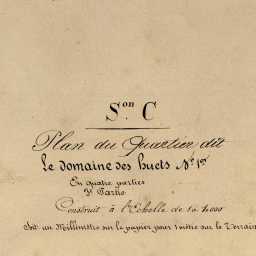 Son C
Plan du Quartier dit
Le domaine des huets No 1er
En quatre parties
3e Partie
Construit à l'Echelle de 1 à 1000
Soit un Millimètre sur le papier pour 1 mètre sur le Terrain